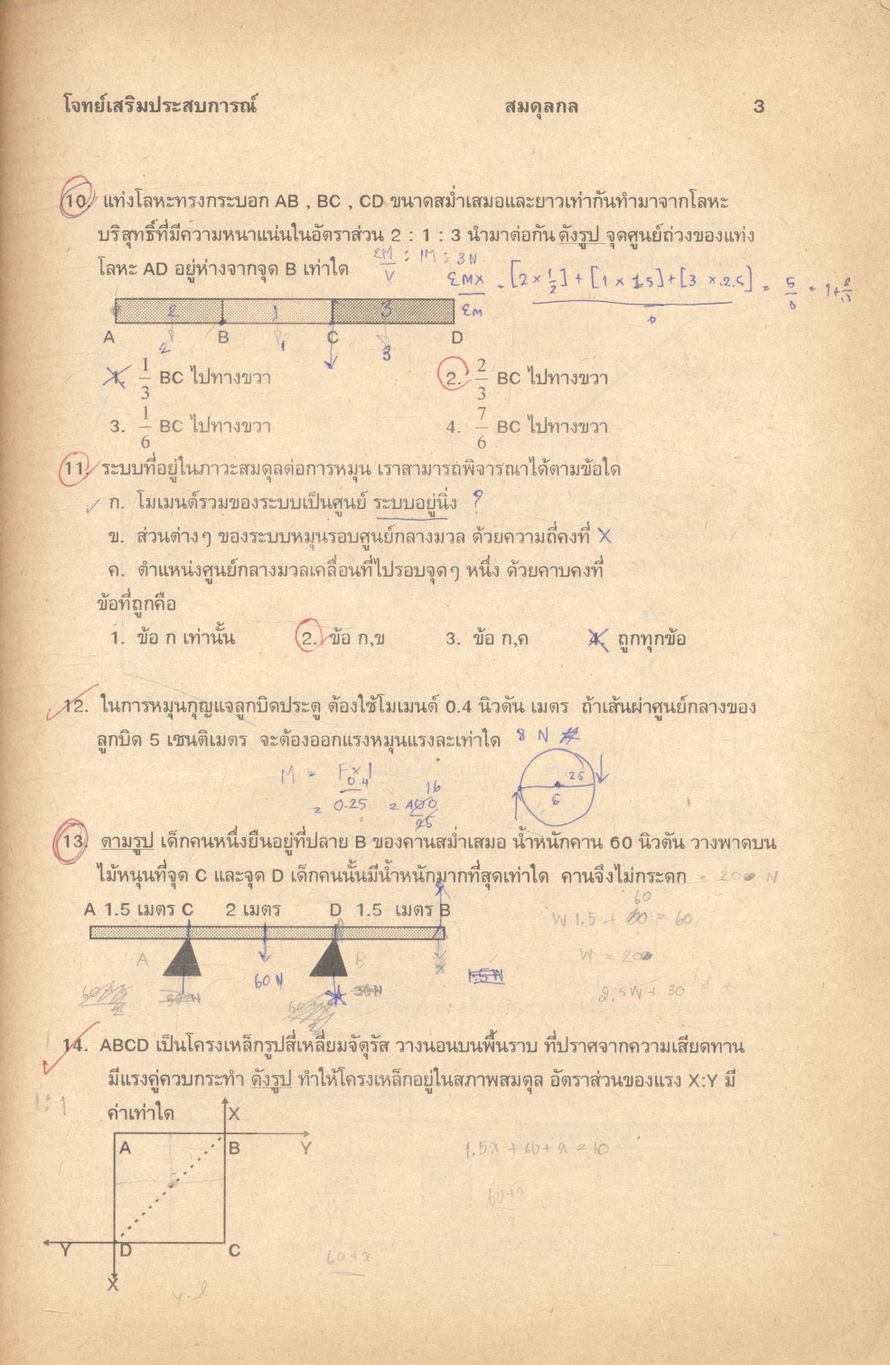 โจทย์เสริมประสบการณ์ สมดุลกล 3
10. แท่งโลหะทรงกระบอก AB , BC , CD ขนาดสม่ำเสมอและยาวเท่ากันทำมาจากโลหะ
บริสุทธิ์ที่มีความหนาแน่นในอัตราส่วน 2 : 1 : 3 นำมาต่อกัน ดังรูป จุดศูนย์ถ่วงของแท่ง
โลหะ AD อยู่ห่างจากจุด B เท่าใด
ΣMX / ΣM = [2 × 1/2] + [1 × 1.5] + [3 × 2.5]
2 1 3
A B C D
2 1 3
1. 1/3 BC ไปทางขวา 2. 2/3 BC ไปทางขวา
3. 1/6 BC ไปทางขวา 4. 7/6 BC ไปทางขวา
11. ระบบที่อยู่ในภาวะสมดุลต่อการหมุน เราสามารถพิจารณาได้ตามข้อใด
ก. โมเมนต์รวมของระบบเป็นศูนย์ ระบบอยู่นิ่ง ?
ข. ส่วนต่างๆ ของระบบหมุนรอบศูนย์กลางมวล ด้วยความถี่คงที่ X
ค. ตำแหน่งศูนย์กลางมวลเคลื่อนที่ไปรอบจุดๆ หนึ่ง ด้วยคาบคงที่
ข้อที่ถูกคือ
1. ข้อ ก เท่านั้น 2. ข้อ ก,ข 3. ข้อ ก,ค 4. ถูกทุกข้อ
12. ในการหมุนกุญแจลูกบิดประตู ต้องใช้โมเมนต์ 0.4 นิวตัน เมตร ถ้าเส้นผ่าศูนย์กลางของ
ลูกบิด 5 เซนติเมตร จะต้องออกแรงหมุนแรงละเท่าใด 8 N
M = F × l
25
5
= 0.4 / 0.25 = 400 / 25 16
13. ตามรูป เด็กคนหนึ่งยืนอยู่ที่ปลาย B ของคานสม่ำเสมอ น้ำหนักคาน 60 นิวตัน วางพาดบน
ไม้หนุนที่จุด C และจุด D เด็กคนนั้นมีน้ำหนักมากที่สุดเท่าใด คานจึงไม่กระดก = 200 N
A 1.5 เมตร C 2 เมตร D 1.5 เมตร B
60
W 1.5 + 60 = 60
A B
W = 200
60 N
2.5W + 30
14. ABCD เป็นโครงเหล็กรูปสี่เหลี่ยมจัตุรัส วางนอนบนพื้นราบ ที่ปราศจากความเสียดทาน
มีแรงคู่ควบกระทำ ดังรูป ทำให้โครงเหล็กอยู่ในสภาพสมดุล อัตราส่วนของแรง X:Y มี
1:1
ค่าเท่าใด X
A B Y
60+x
Y D C
60+x
X